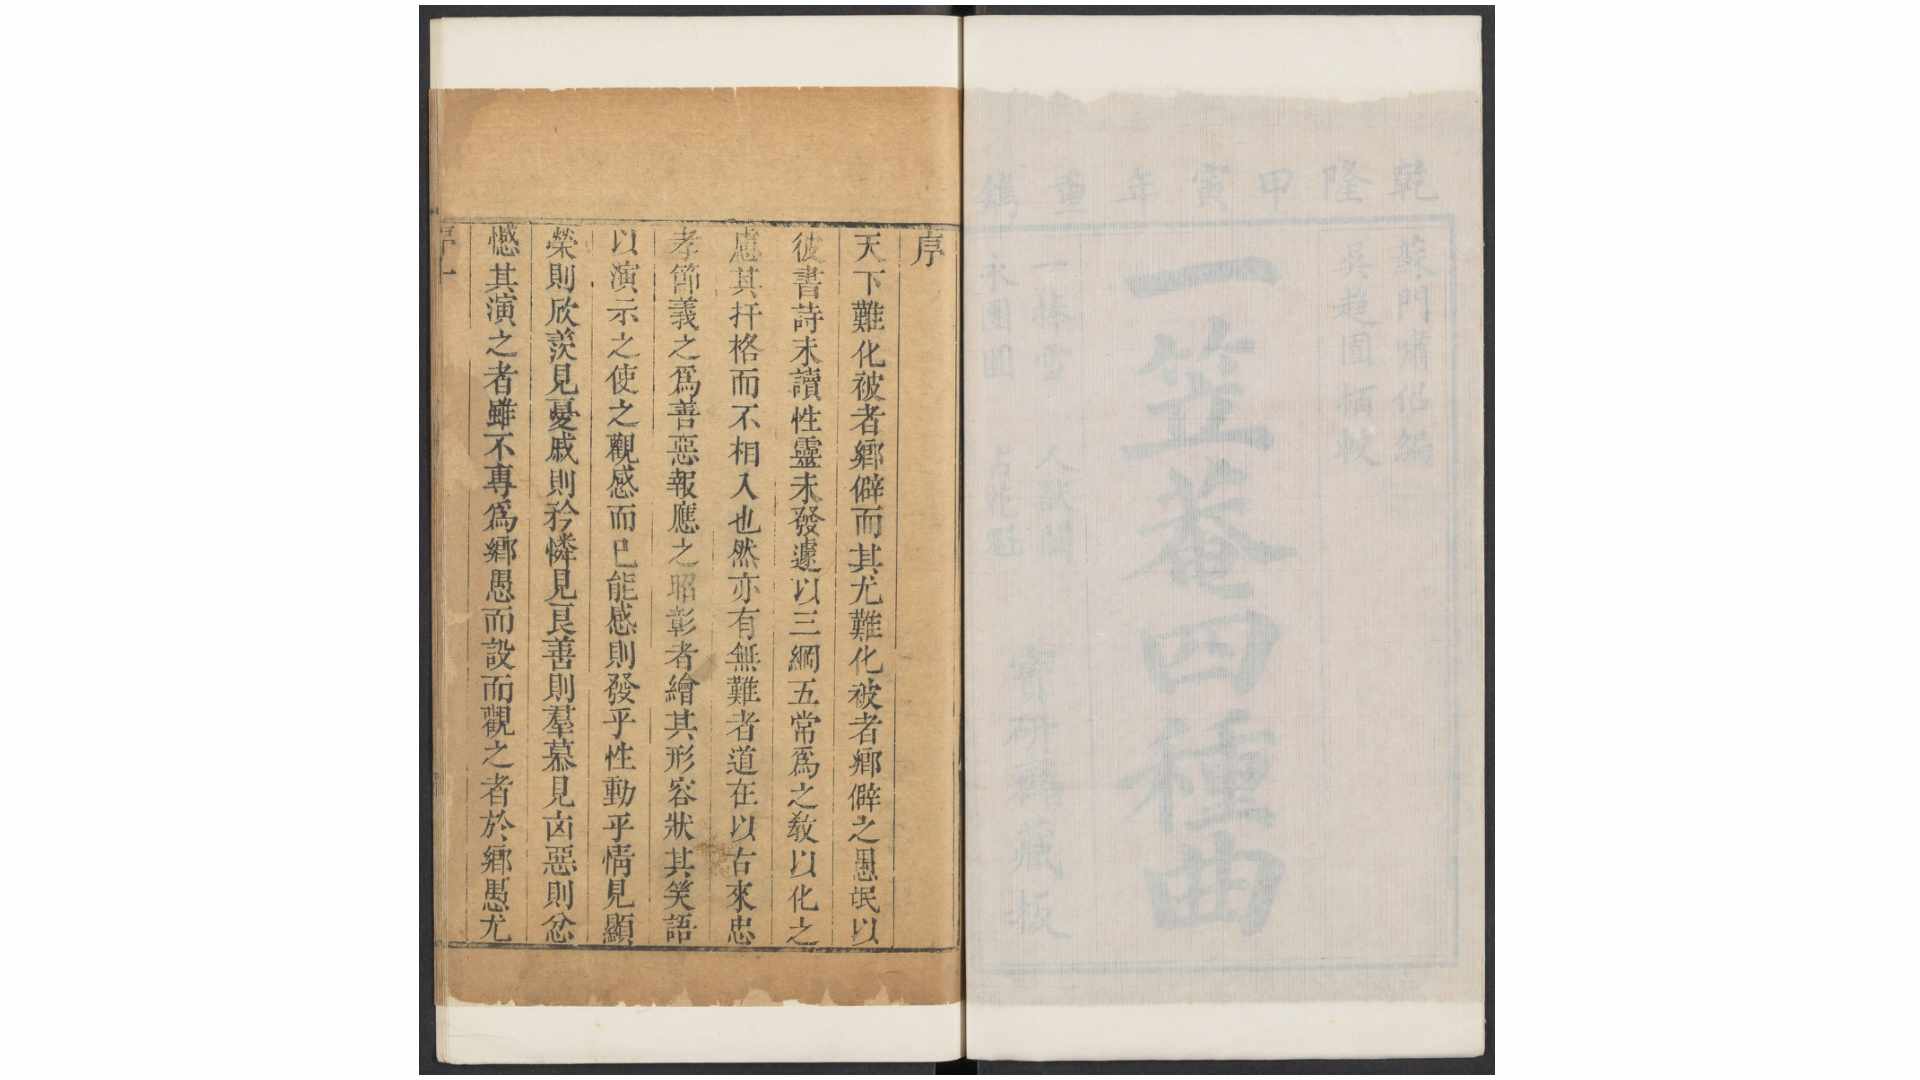 乾隆甲寅年重鐫
蘇門嘯侶編
吳趨園栖較
一笠菴四種曲
一捧雪 人獸關
永團圓 占花魁
寶研齋藏板
序
天下難化被者鄉僻而其尤難化被者鄉僻之愚氓以
彼書詩未讀性靈未發遽以三綱五常爲之敎以化之
慮其扞格而不相入也然亦有無難者道在以古來忠
孝節義之爲善惡報應之昭彰者繪其形容狀其笑語
以演示之使之觀感而已能感則發乎性動乎情見顯
榮則欣羨見憂戚則矜憐見良善則羣慕見凶惡則忿
憾其演之者雖不專爲鄉愚而設而觀之者於鄉愚尤
序 一